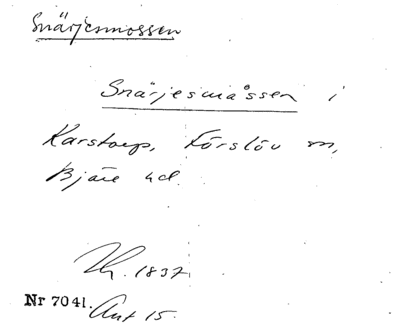 Snärjesmossen
Snärjesmåssen i
Karstorp, Förslöv sn,
Bjäre hd.
1837
Nr 7041. Ant 15.